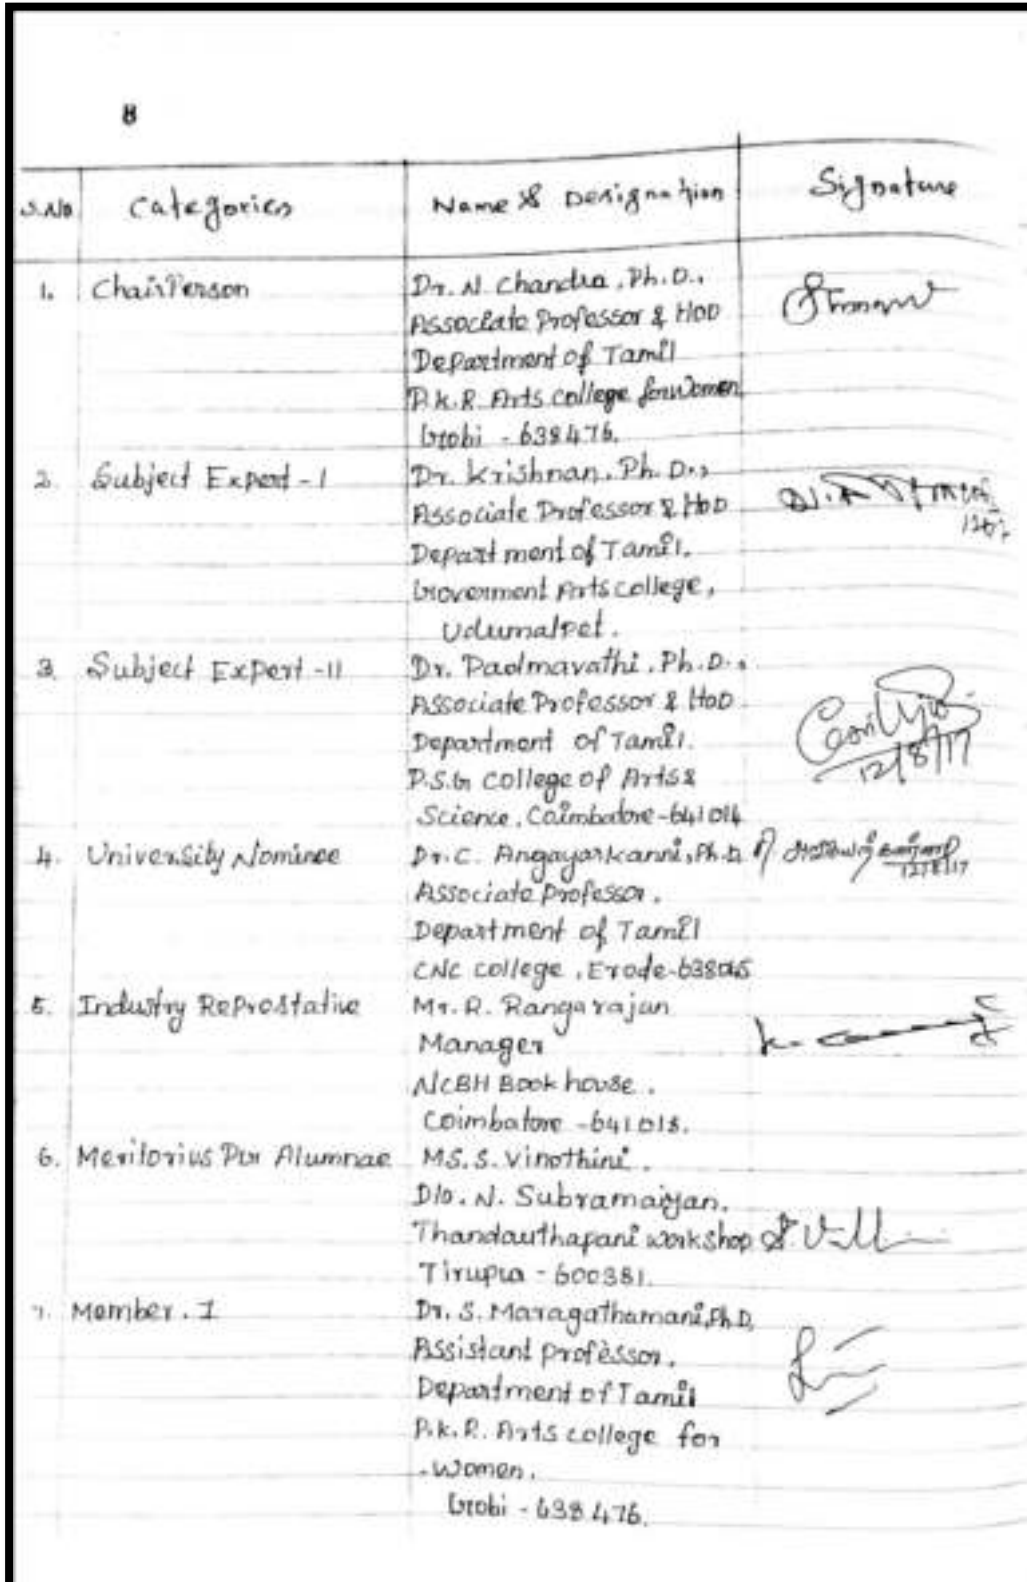 8
S.No Categories Name & Designation Signature
1. ChairPerson Dr. N. Chandra, Ph.D.,
Associate Professor & HOD
Department of Tamil
P.K.R. Arts college for Women,
Gobi - 638476.
2. Subject Expert - I Dr. Krishnan, Ph.D.,
Associate Professor & HOD
Department of Tamil.
Goverment Arts college,
Udumalpet.
3. Subject Expert - II Dr. Padmavathi, Ph.D.,
Associate Professor & HOD
Department of Tamil.
12/8/17
P.S.G College of Arts &
Science, Coimbatore-641014
4. University Nominee Dr. C. Angayarkanni, Ph.D,
12/8/17
Associate Professor,
Department of Tamil
CNC college, Erode-638045
5. Industry Reprostative Mr. R. Rangarajan
Manager
NCBH Book house.
Coimbatore - 641018.
6. Meritorius Pur Alumnae MS. S. Vinothini.
D/o. N. Subramaiyan.
Thandauthapani workshop
Tirupur - 600381.
7. Member. I Dr. S. Maragathamani, Ph.D,
Assistant professor,
Department of Tamil
P.K.R. Arts college for
women.
Gobi - 638 476.